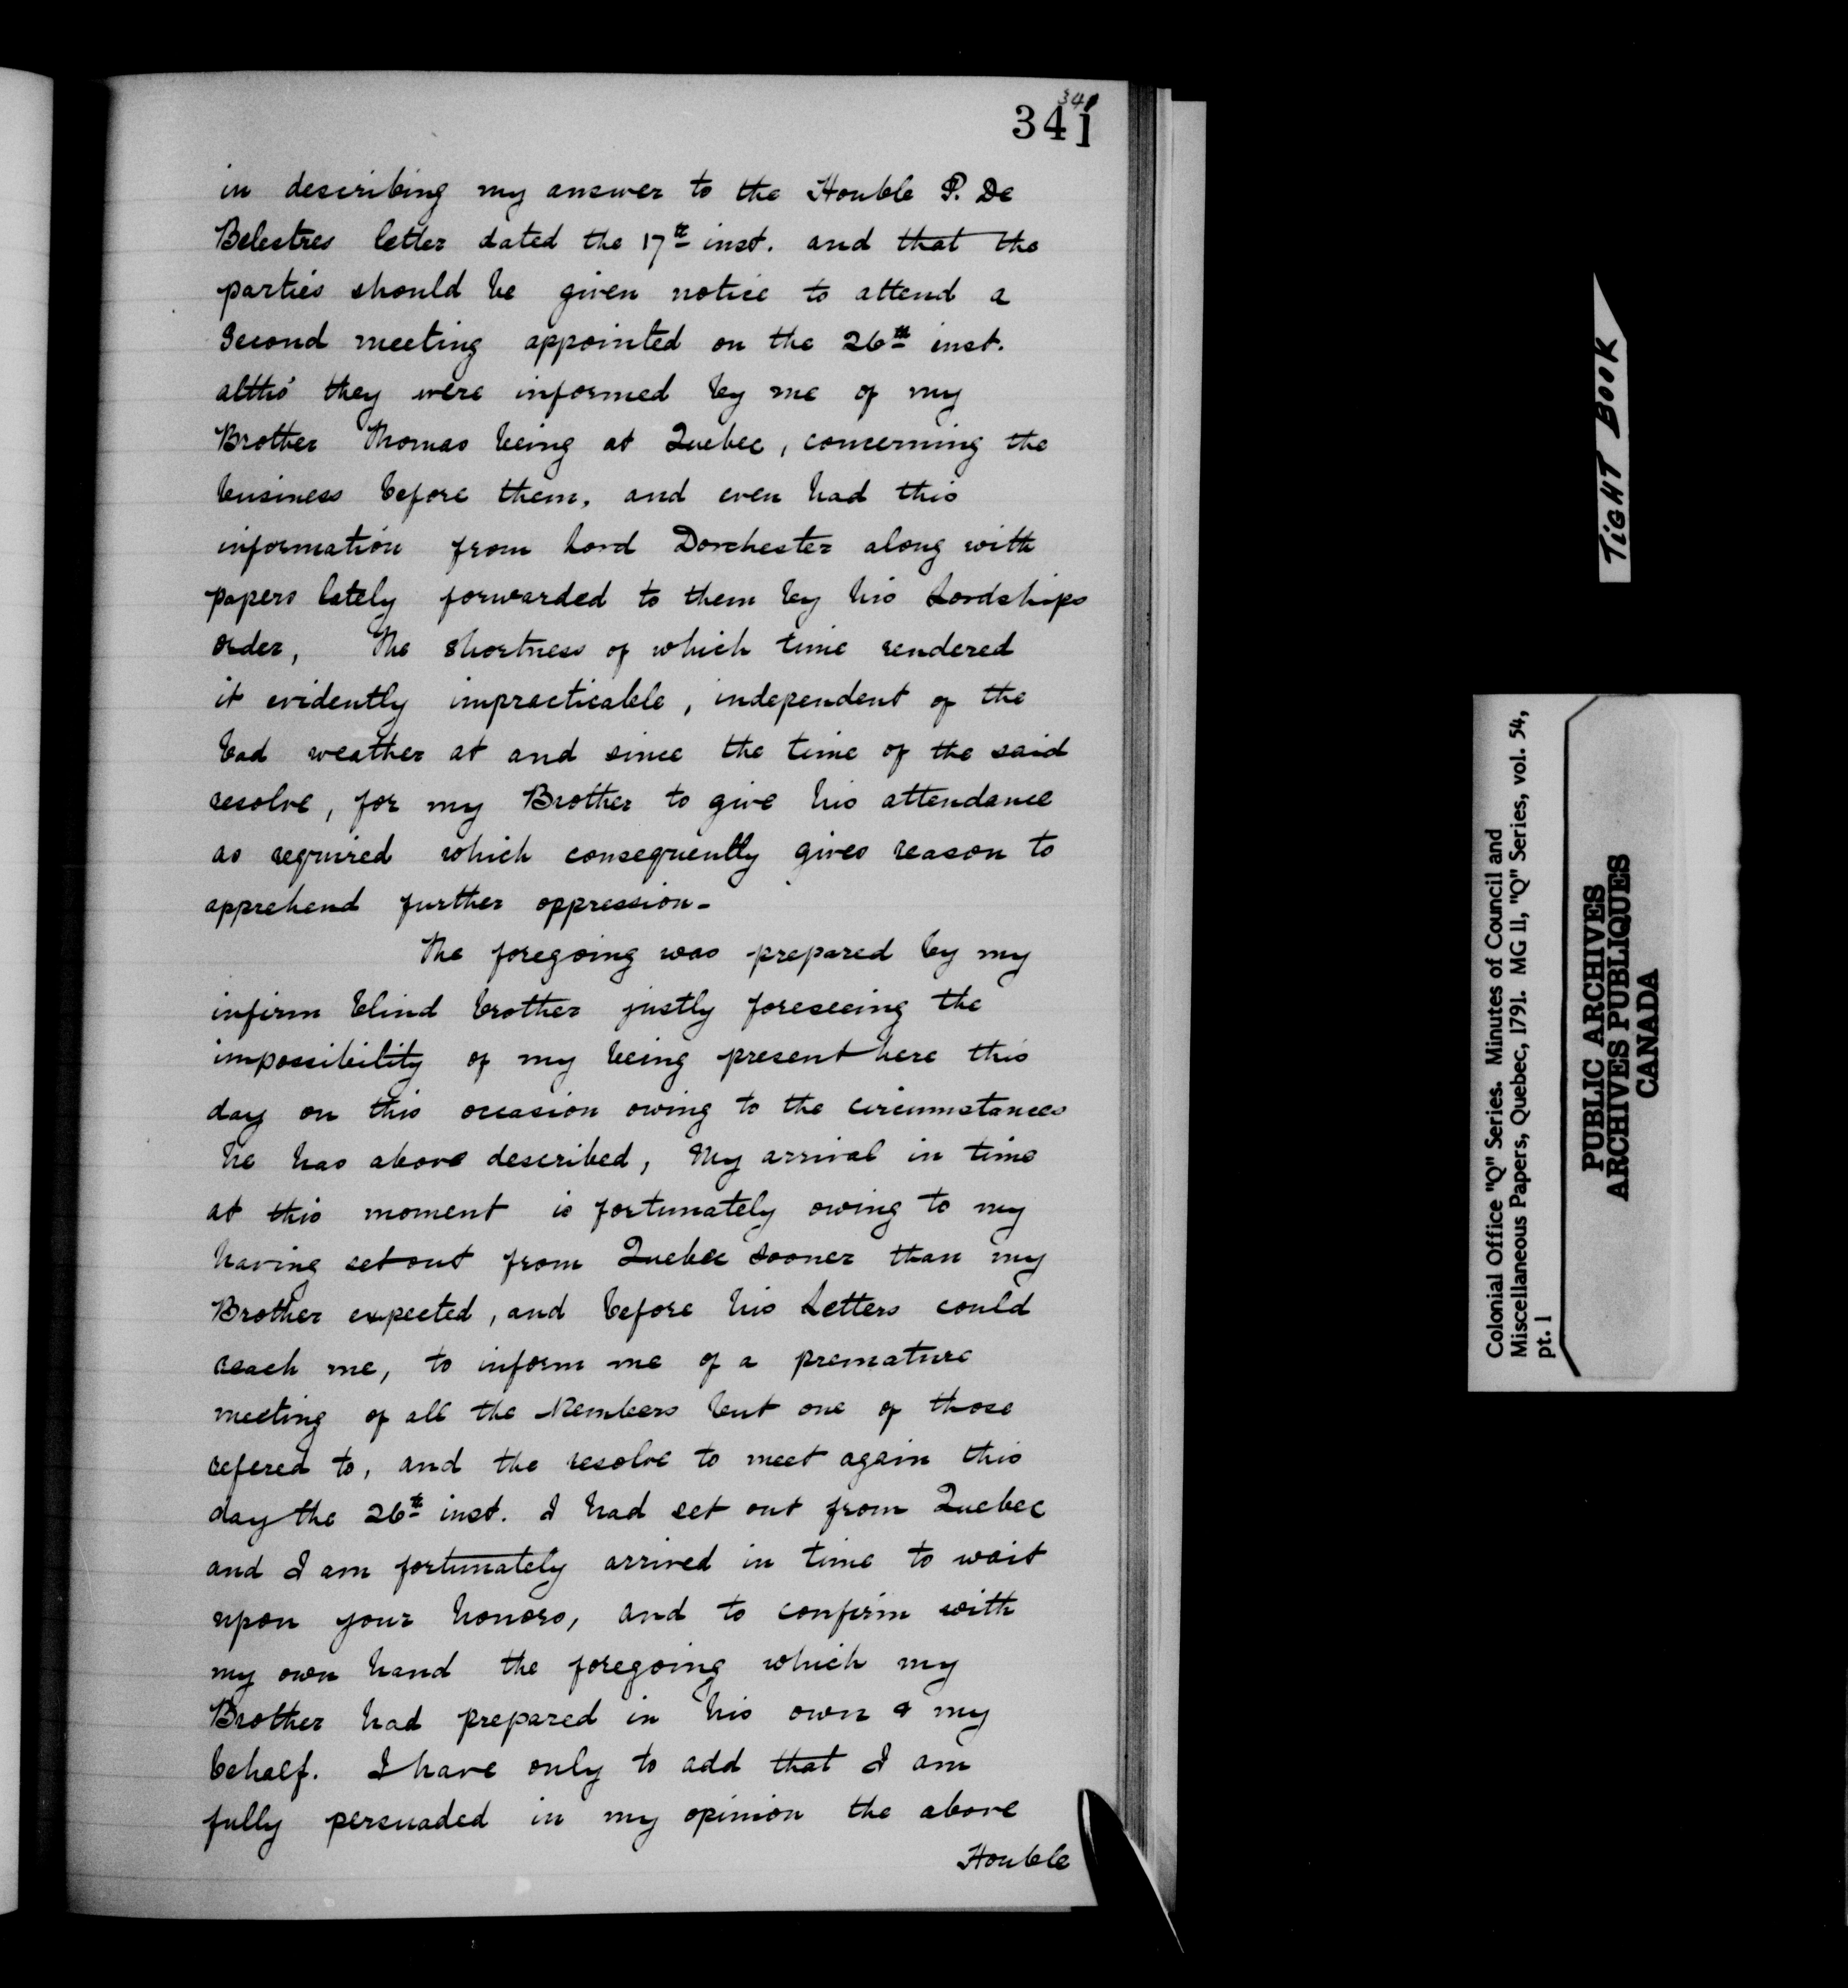 341
341
in describing my answer to the Honble P. De
Belestres letter dated the 17th inst. and that the
parties should be given notice to attend a
Second meeting appointed on the 26th inst.
altho' they were informed by me of my
Brother Thomas being at Quebec, concerning the
business before them, and even had this
information from Lord Dorchester along with
papers lately forwarded to them by his Lordships
order, The shortness of which time rendered
it evidently impracticable, independent of the
bad weather at and since the time of the said
resolve, for my Brother to give his attendance
as required which consequently gives reason to
apprehend further oppression-
The foregoing was prepared by my
infirm blind brother justly foreseeing the
impossibility of my being present here this
day on this occasion owing to the circumstances
he has above described, My arrival in time
at this moment is fortunately owing to my
having set out from Quebec sooner than my
Brother expected, and before his Letters could
reach me, to inform me of a premature
meeting of all the Members but one of those
refered to, and the resolve to meet again this
day the 26th inst. I had set out from Quebec
and I am fortunately arrived in time to wait
upon your honors, and to confirm with
my own hand the foregoing which my
Brother had prepared in his own & my
behalf. I have only to add that I am
fully persuaded in my opinion the above
Honble
TIGHT BOOK
Colonial Office "Q" Series. Minutes of Council and
Miscellaneous Papers, Quebec, 1791. MG 11, "Q" Series, vol. 54,
pt. 1
PUBLIC ARCHIVES
ARCHIVES PUBLIQUES
CANADA